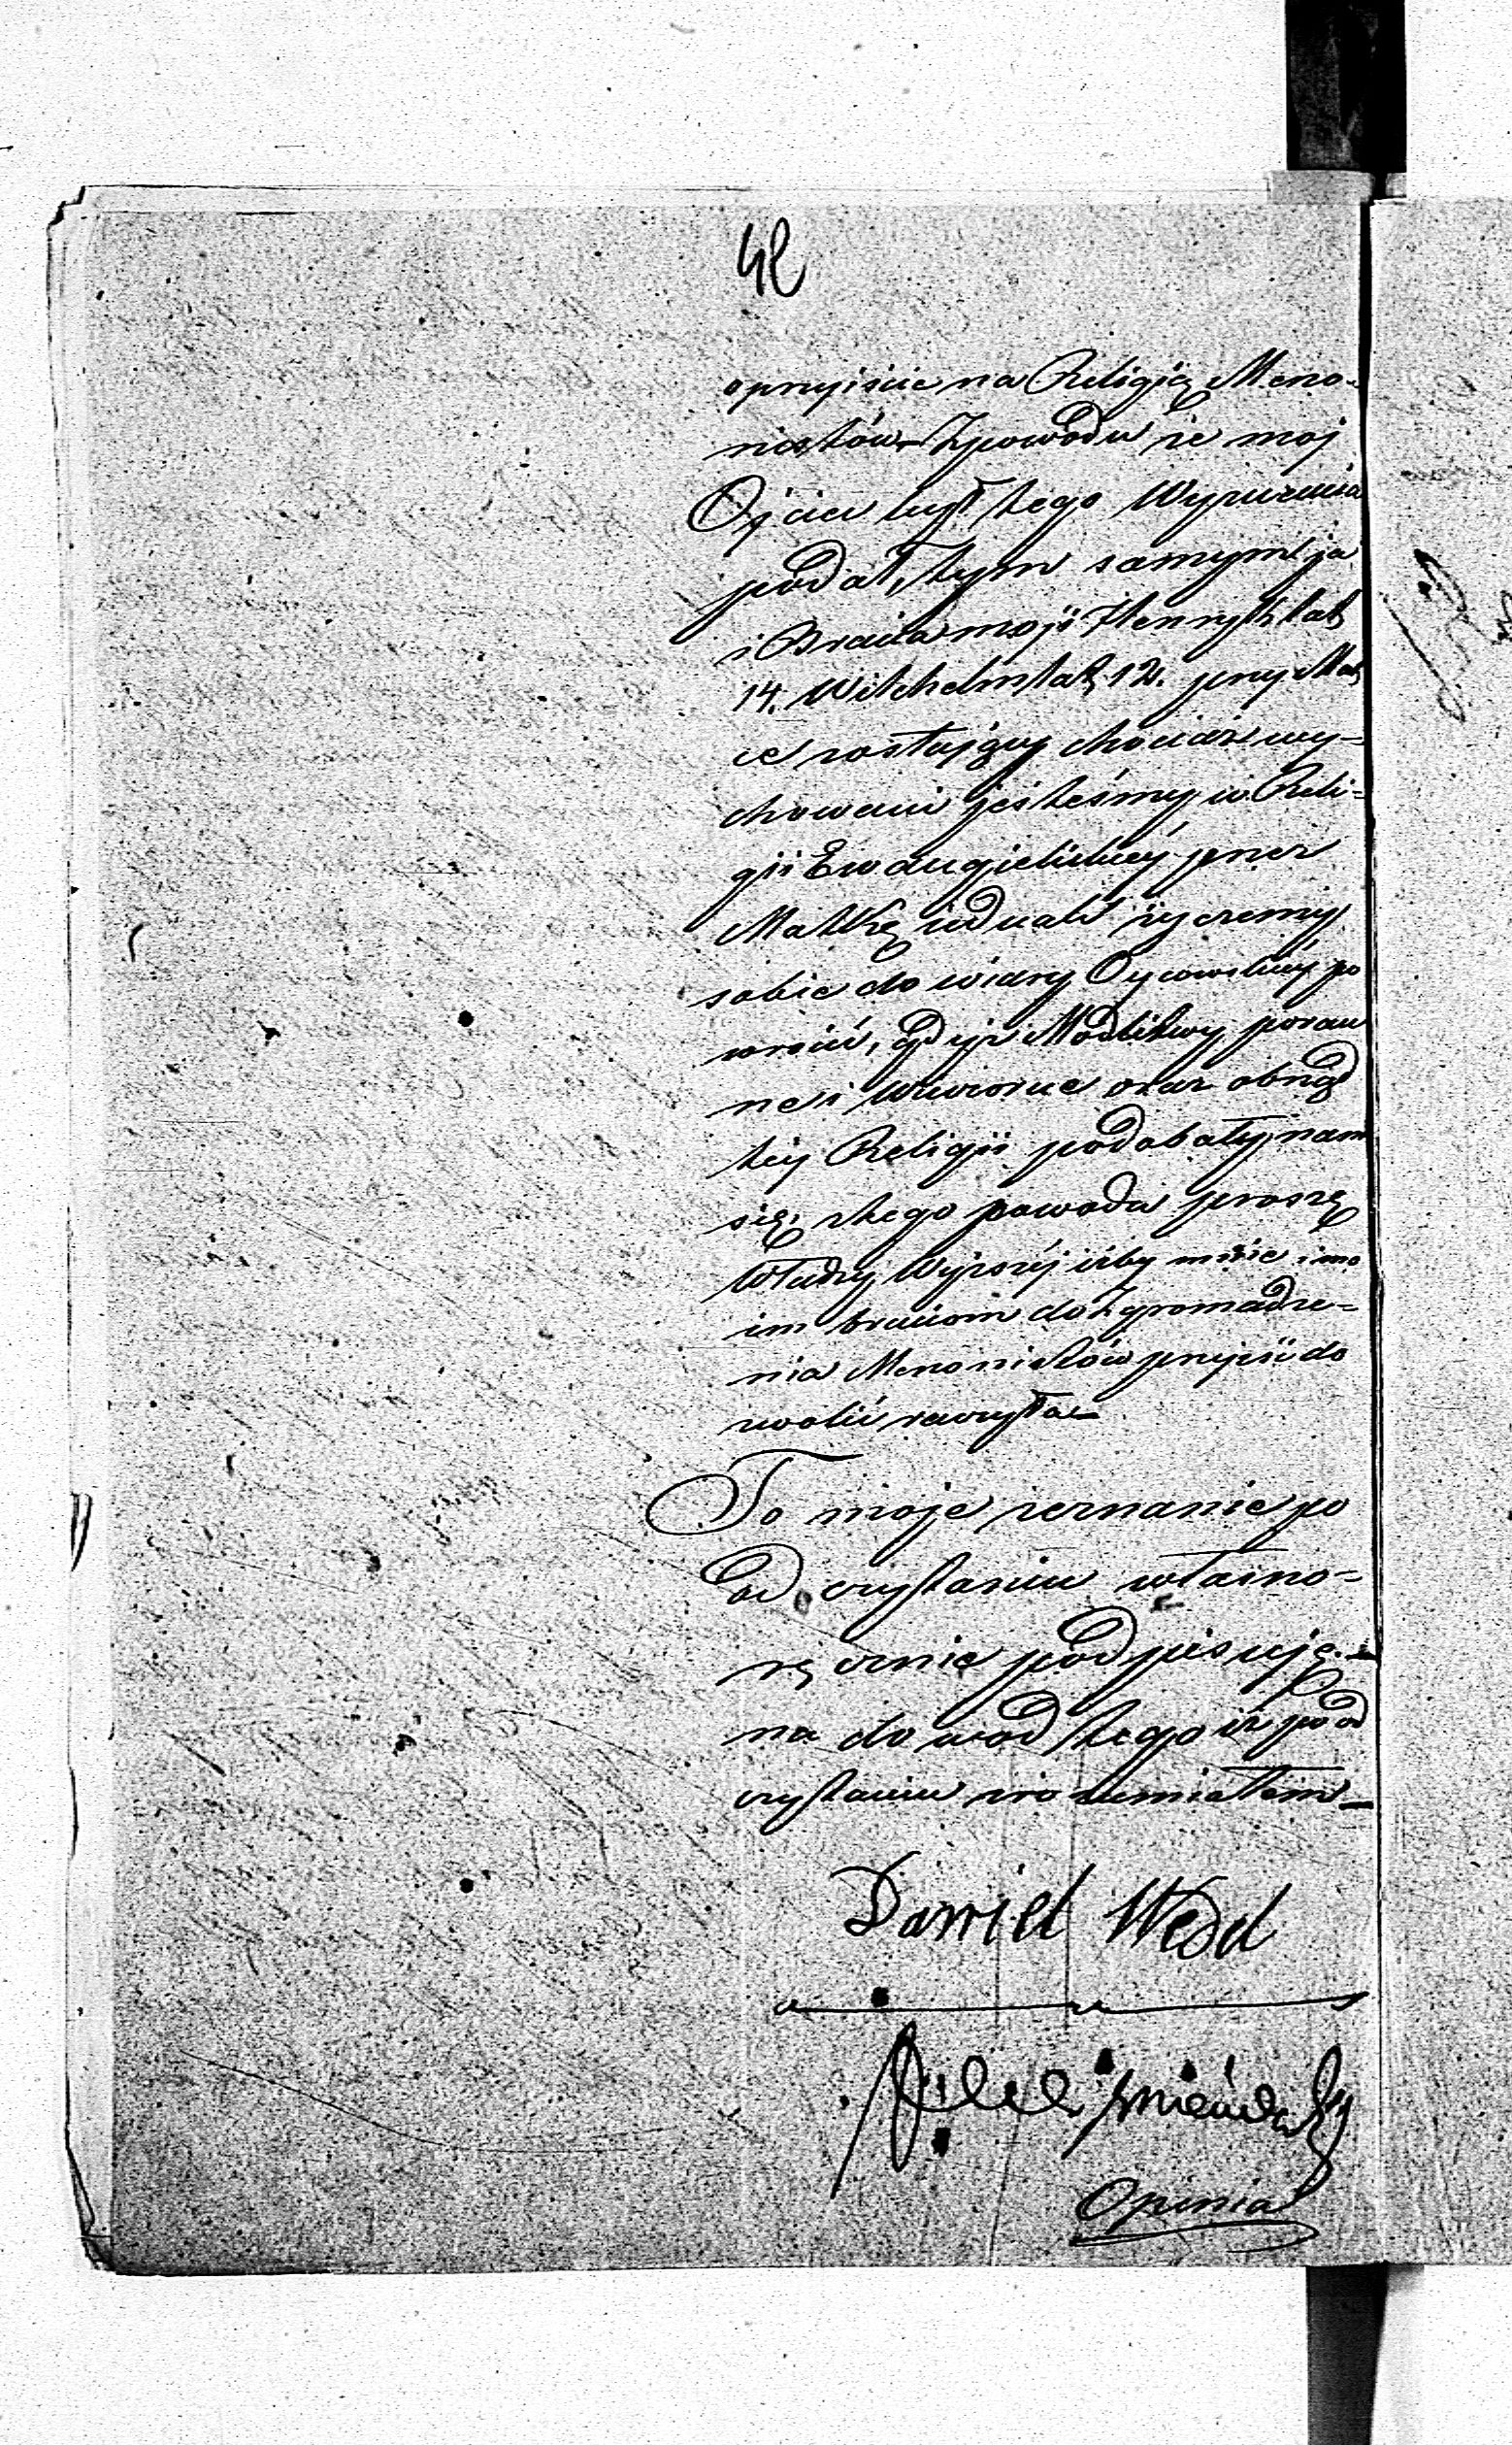 42
o przyiście na Religią Meno-
nistów – Z powodu że moj
Ojciec był tego Wyznania
podał, tym samym ja
i Bracia moji Henryk lat
14. Wilchelm lat 12. przy Mat
ce zostający chociaż wy-
chowani jesteśmy w Reli-
gii Ewangielickiéj przez
Matkę jednak życzemy
sobie do wiary Oycowskiéj po
wrócić, gdyż Modlitwy poran
ne i wieczorne oraz obrząd
tey Religii podobały nam
się, z tego powodu proszę
Władzy Wyższéj iżby mnie i mo
im braciom do Zgromadze-
nia Menonistów przejść do
zwolić raczyła –
To moje zeznanie po
od czytaniu własno-
ręcznie podpisuję. –
na dowod tego iż po od
czytaniu zrozumiałem –
Daniel Wedel
Opinia